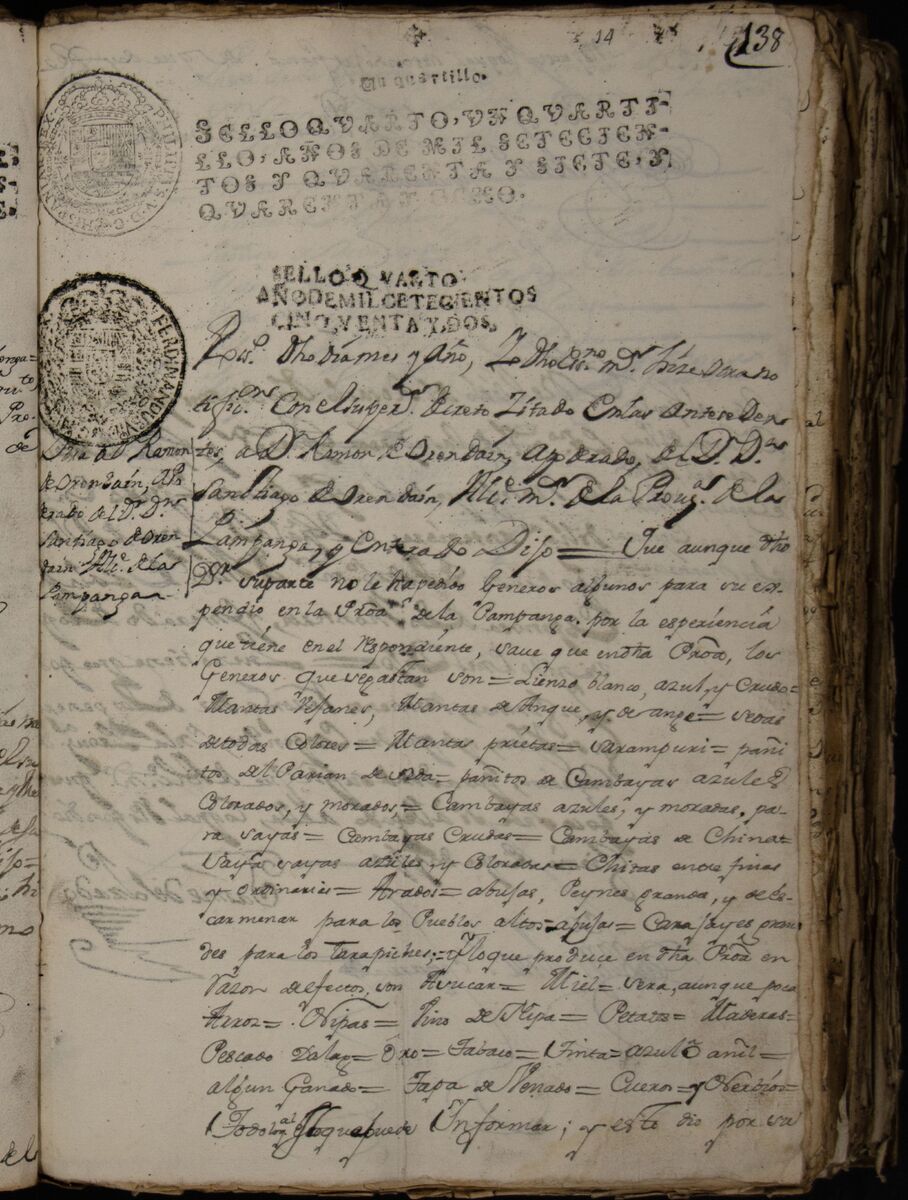 14
138
Un quartillo.
SELLO QVARTO, VN QVARTI-
LLO, AÑOS DE MIL SETECIEN-
TOS Y QVARENTA Y SIETE, Y
QVARENTA Y OCHO.
SELLO QVARTO
AÑO DE MIL CETECIENTOS
CINQVENTA Y DOS,
En dho dia mes y Año, Yo dho Essno mr. hize otra no
tificn. Con el super.r decreto Zitado En las Anteceden
tes, a Dn. Ramon de Orendain, Apoderado, de el Dr. Dn.
Santiago de Orendain, Alce. mr. de la Prova. de la
Pampanga, y Enterado Dijo = Que aunque dho
Dr. su parte no le ha pedido Generos algunos para su ex-
pendio en la Proa. de la Pampanga. por la esperiencia
que tiene en el Respondiente, save que en dha Proa, los
Generos que se gastan son = Lienzo blanco, azul, y Crudo =
Mantas Mantas de Angue, y de ange = sedas
de todas Colores = Mantas prietas = Sarampuri = pañi
tos del Parian de seda = pañitos de Cambayas azules
Colorados, y morados = Cambayas azules, y moradas, pa-
ra sayas = Cambayas Crudas = Cambayas de China =
Saya sayas azules, y Coloradas = Chitas entre finas
y Ordinarias = Arados = abujas, Peynes grande, y de es-
carmenar para los Pueblos altos = abujas = Carajayes gran
des para los trapiches; = Y lo que produce en dha Proa en
razon de fectos, son Azucar = Miel = sera, aunque poca
Arroz = Nipas = Vino de Nipa = Petates = Maderas =
Pescado Dalag = Oro = Tabaco = Tinta = azul añil =
algun Ganado = Tapa de Venado = Cueros = y Nerbios =
Todo lo qual lo que puede Informar; y esto dio por su
Otra a Dn. Ramon
de Orendain, Apo
derado de el Dr. Dn.
Santiago de Oren
dain Alce. de la
Pampanga